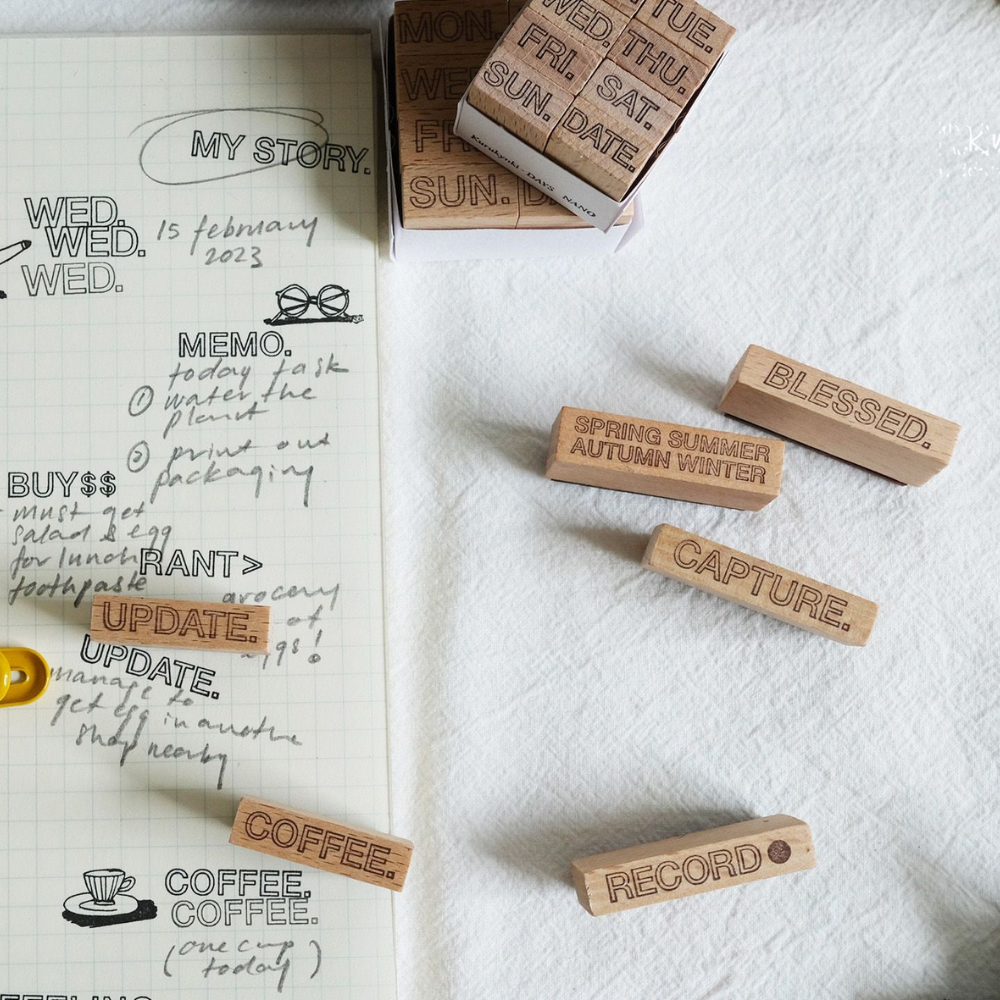 MY STORY.
WED.
WED.
WED.
15 february
2023
MEMO.
today task
① water the
plant
② print out
packaging
BUY$$
must get
salad & egg
for lunch
toothpaste
RANT>
grocery
of
UPDATE.
UPDATE.
manage to
get egg in another
shop nearby
COFFEE.
COFFEE.
COFFEE.
(one cup
today)
MON.
SUN.
WED. TUE.
FRI. THU.
SUN. SAT.
DATE.
DAYS NANO
BLESSED.
SPRING SUMMER
AUTUMN WINTER
CAPTURE.
RECORD